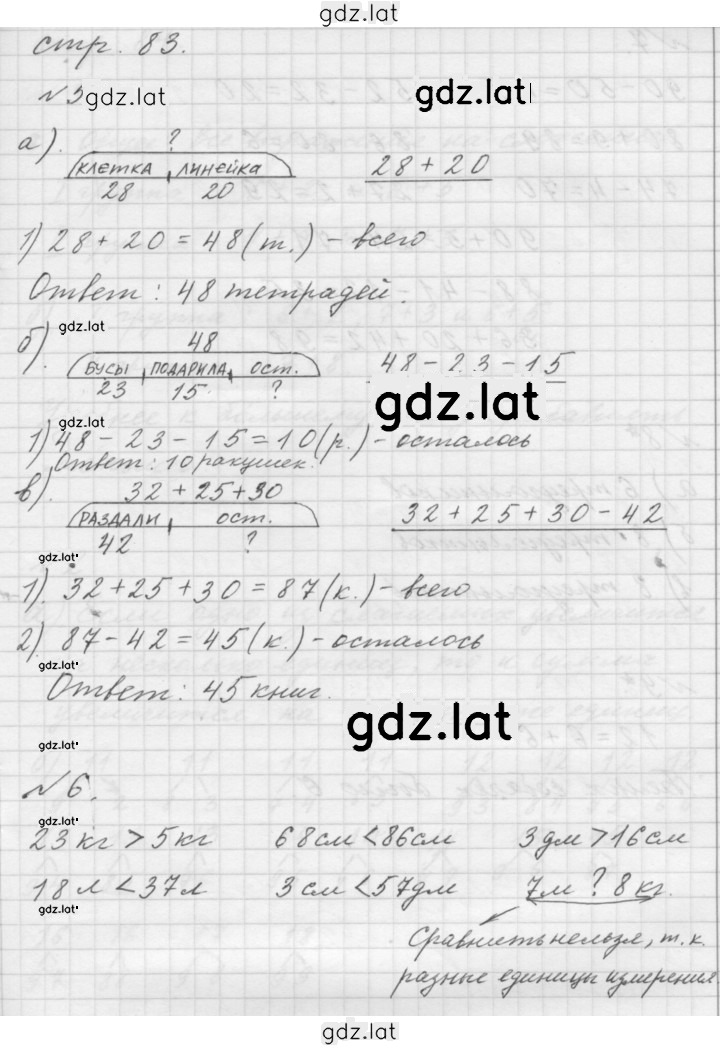 gdz.lat
стр. 83.
gdz.lat gdz.lat
а). ?
КЛЕТКА ЛИНЕЙКА 28 + 20
28 20
1) 28 + 20 = 48 (т.) - всего
Ответ: 48 тетрадей.
gdz.lat
б). 48
БУСЫ ПОДАРИЛА ост. 48 - 23 - 15
23 15 ?
gdz.lat
1) 48 - 23 - 15 = 10 (р.) - осталось
Ответ: 10 ракушек.
в). 32 + 25 + 30
РАЗДАЛИ ост. 32 + 25 + 30 - 42
42 ?
gdz.lat
1). 32 + 25 + 30 = 87 (к.) - всего
2). 87 - 42 = 45 (к.) - осталось
gdz.lat
Ответ: 45 книг.
gdz.lat
gdz.lat
№ 6.
gdz.lat
23 кг > 5 кг 68 см < 86 см 3 дм > 16 см
18 л < 37 л 3 см < 57 дм 7 м ? 8 кг.
gdz.lat
Сравнить нельзя, т. к.
разные единицы измерения.
gdz.lat